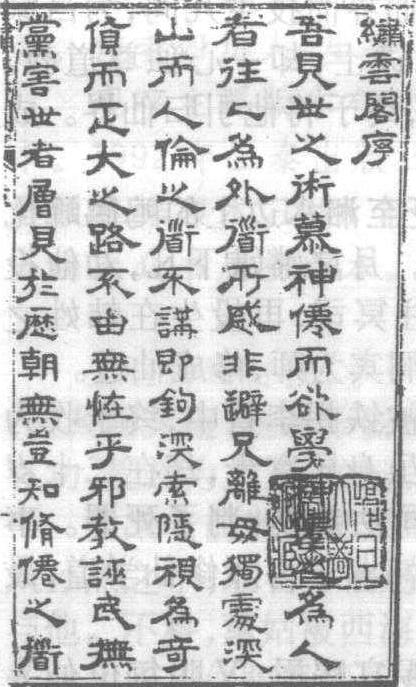 繡雲閣序
吾見世之術慕神僊而欲學為人
者往々為外衜所惑非避兄離毋獨處深
山而人倫之衜不講即鉤深索隱視為奇
貨而正大之路不由無恠乎邪教誣民無
黨害世者層見於歷朝無豈知脩僊之衜